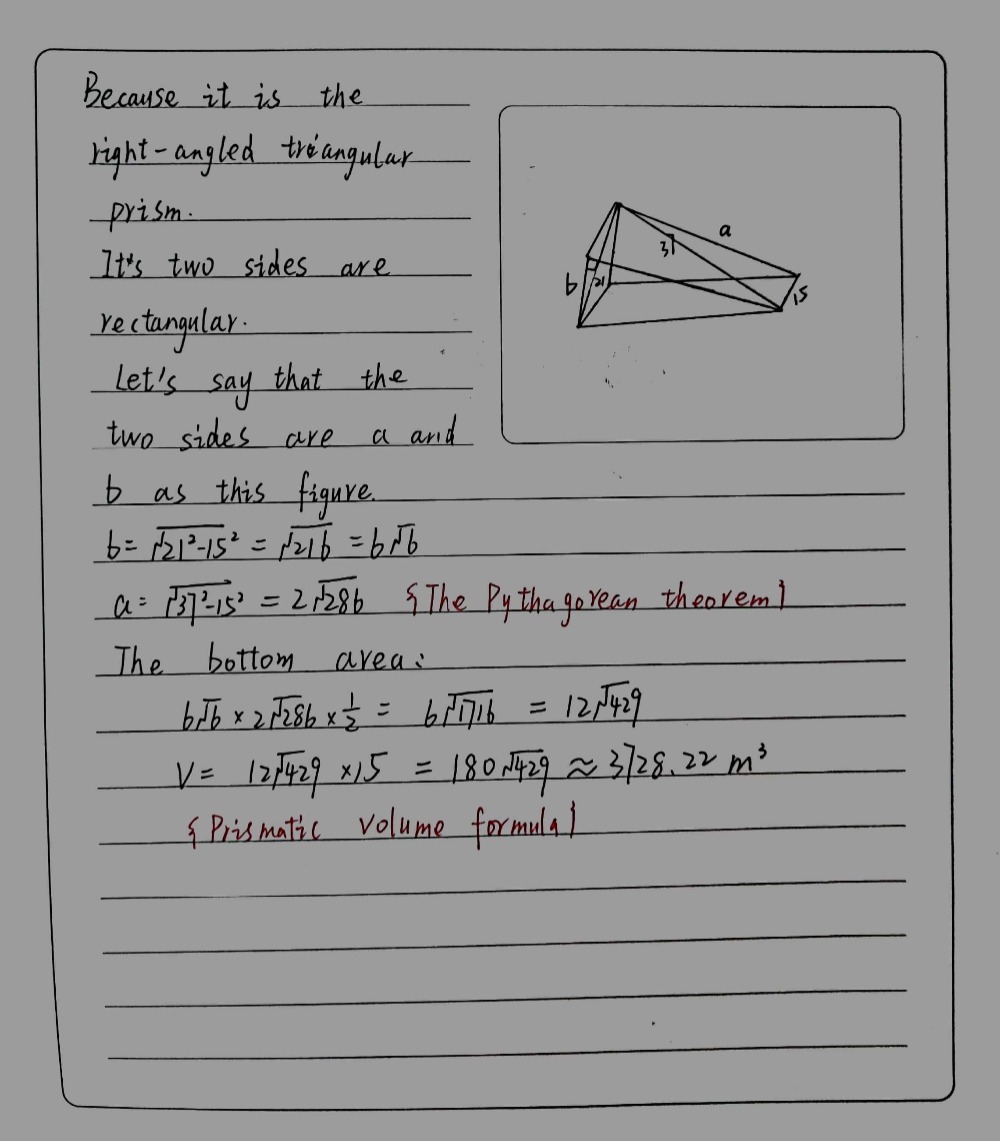 Because it is the
right-angled triangular
prism.
It's two sides are
rectangular.
Let's say that the
two sides are a and
b as this figure.
a
37
b
21
15
b= √21²-15² = √216 = 6√6
a= √37²-15² = 2√286 {The Pythagorean theorem}
The bottom area:
6√6 × 2√286 × 1/2 = 6√1716 = 12√429
V= 12√429 ×15 = 180√429 ≈ 3728.22 m³
{Prismatic volume formula}